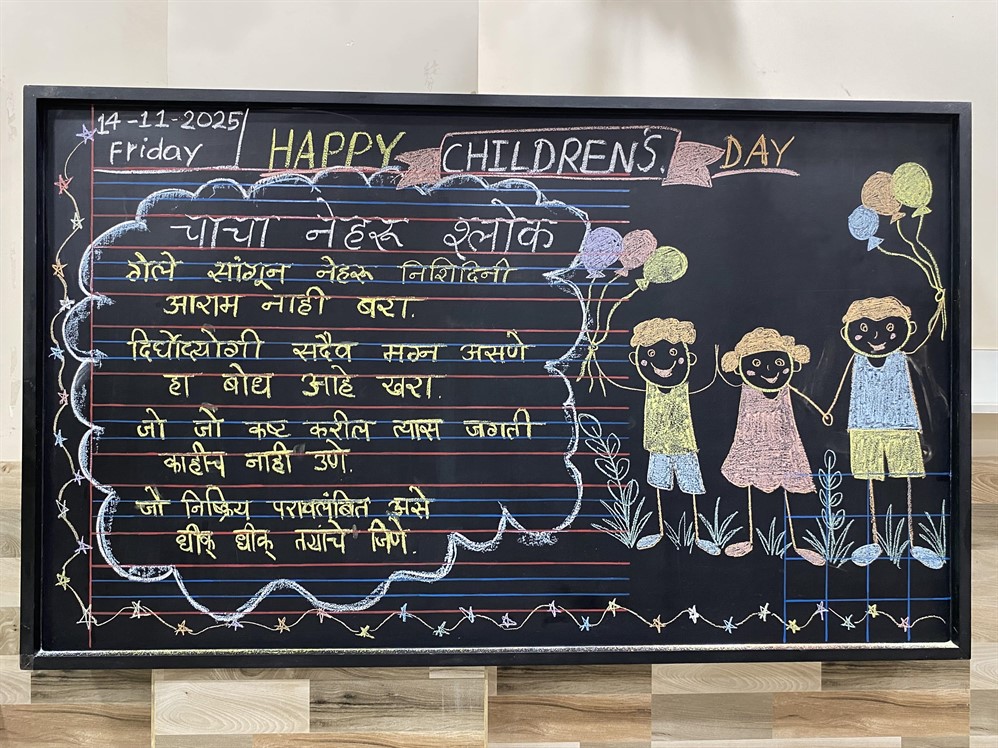 14-11-2025
Friday
HAPPY CHILDREN'S DAY
चाचा नेहरू श्लोक
गेले सांगून नेहरू निशिदिनी
आराम नाही बरा.
दिर्घोद्योगी सदैव मग्न असणे
हा बोध आहे खरा.
जो जो कष्ट करील त्यास जगती
काहीच नाही उणे.
जो निष्क्रिय परावलंबित असे
धीक् धीक् तयांचे जिणे.